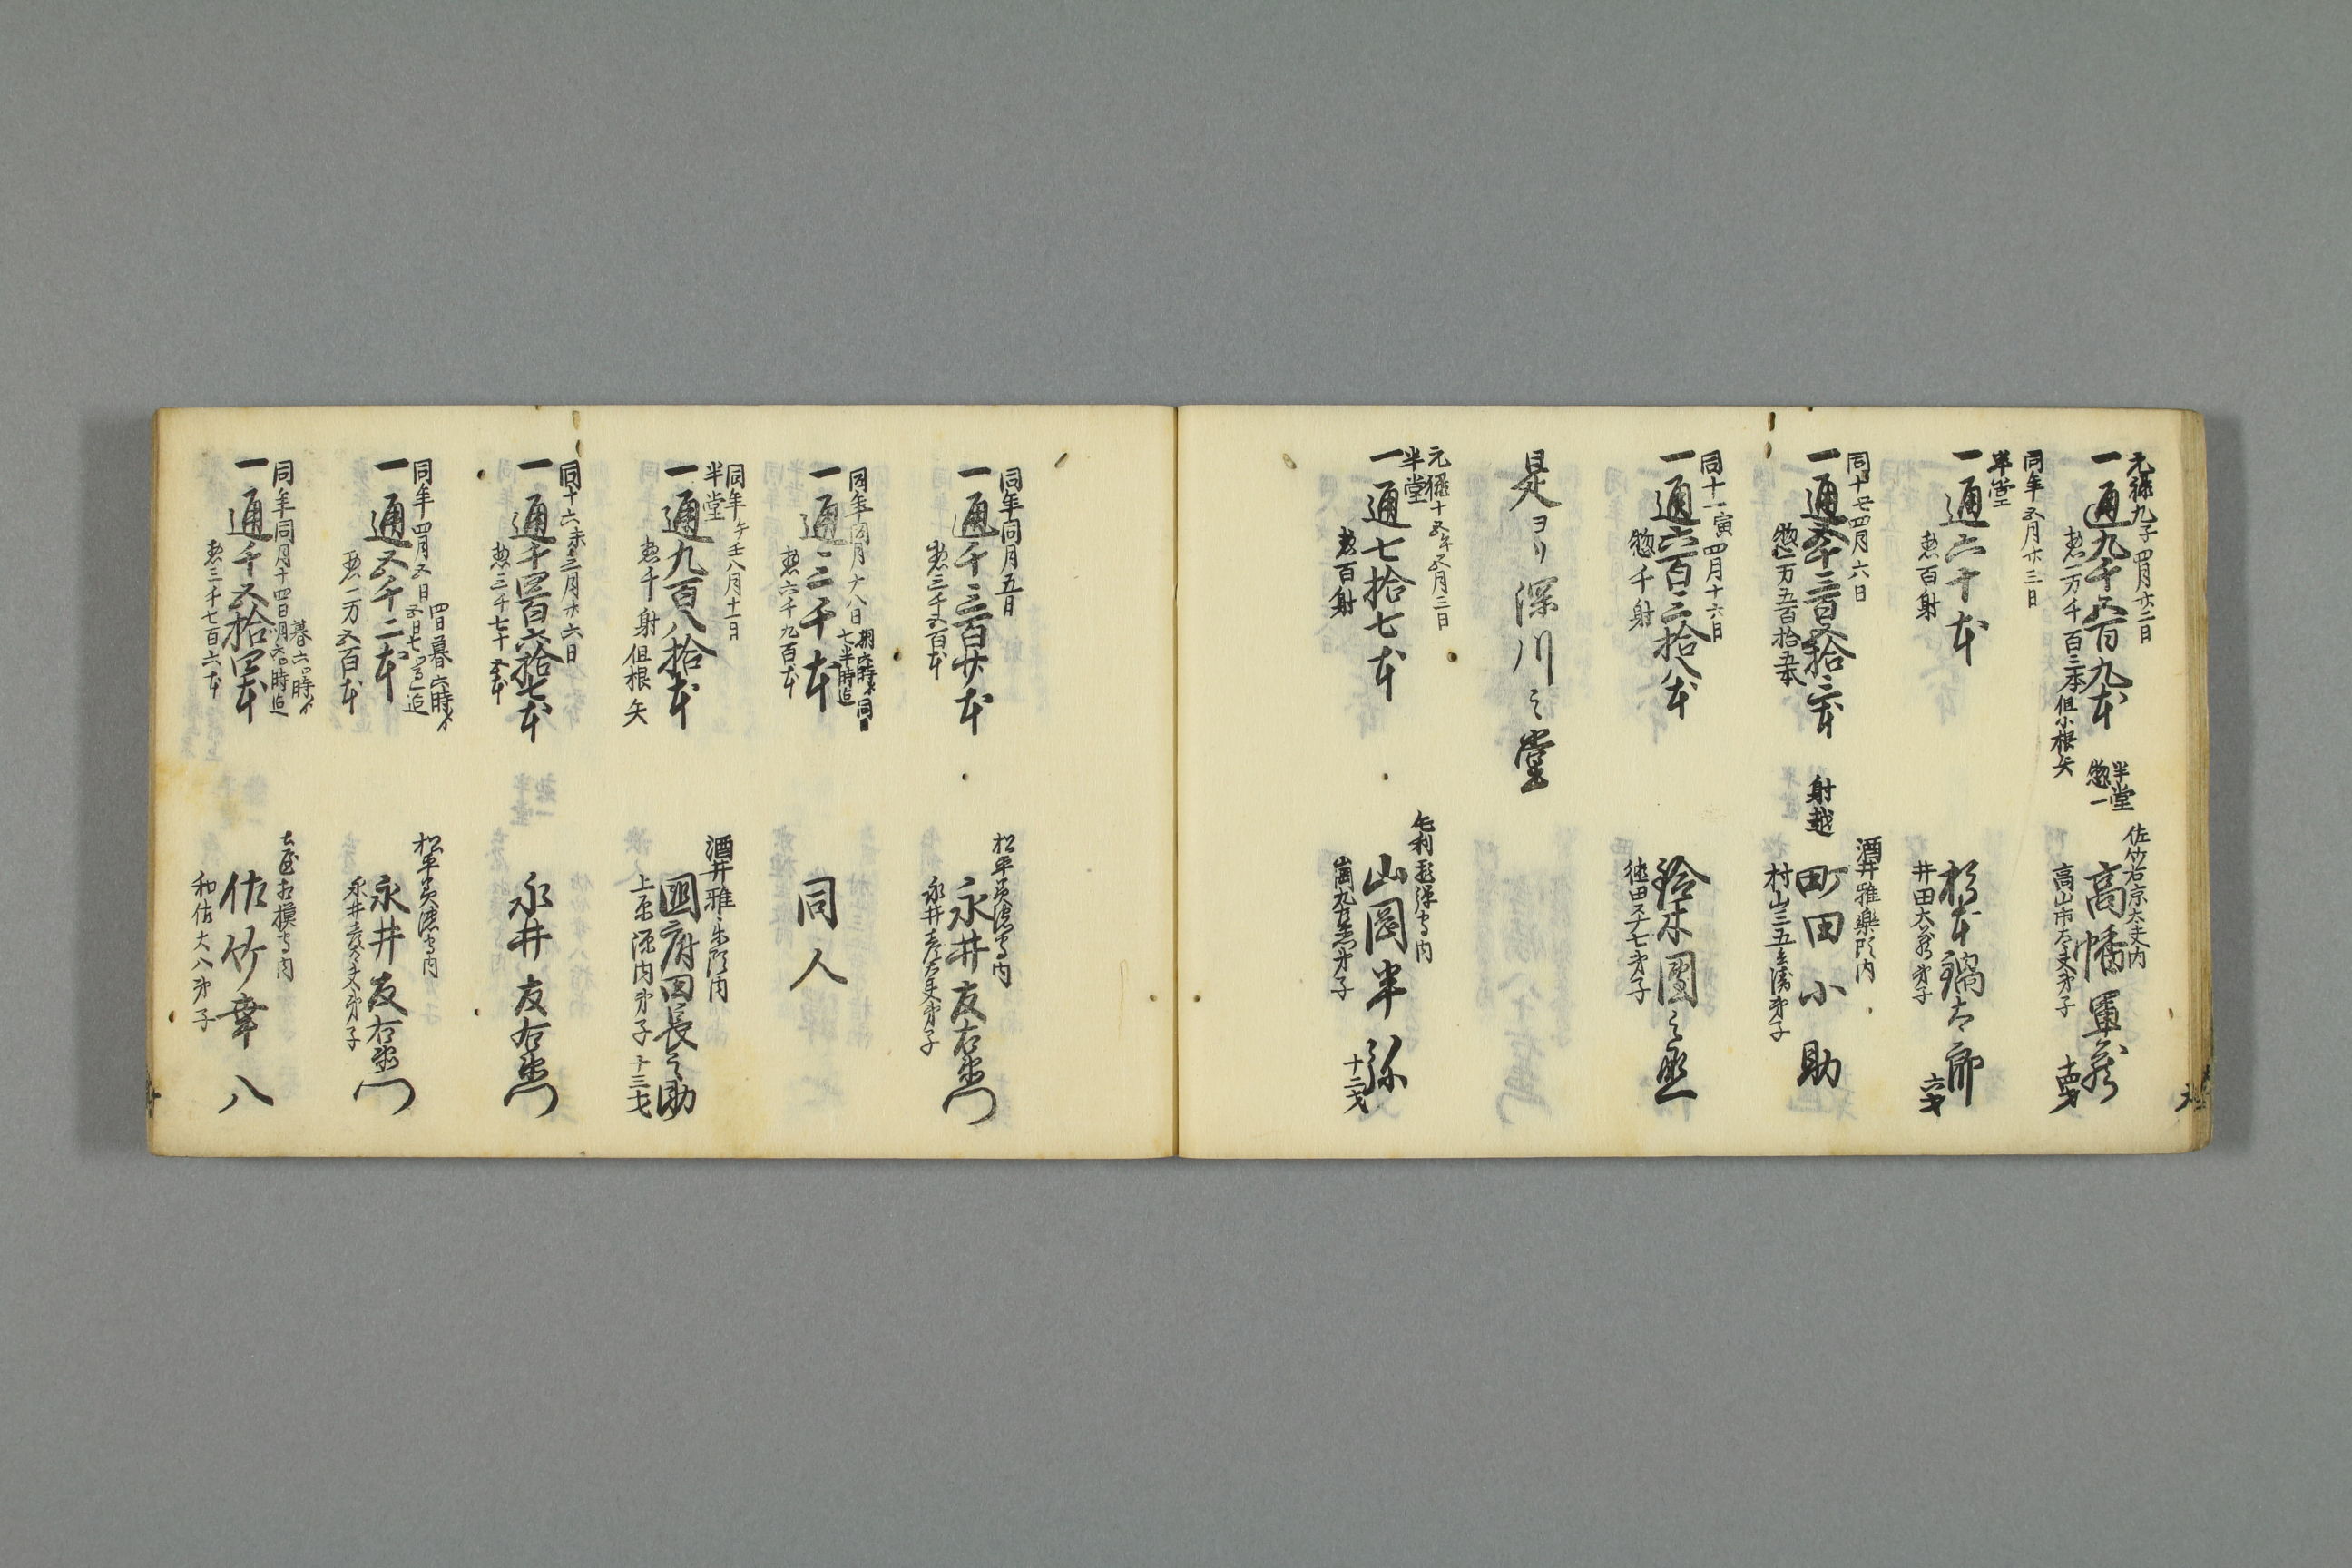 元禄九子四月廿二日
一通九千六百九本 半堂 惣一
惣一万千百三本 但小根矢
佐竹右京大夫内
高幡軍蔵
高山市太夫弟子
同年五月廿三日
半堂
一通六十本
惣百射
杉本鍋太郎
井田太蔵弟子 六才
同十七四月六日
惣一万五百拾五本
射越
酒井雅楽頭内
町田小助
村山三五兵衛弟子
同十一寅四月十六日
一通六百二拾八本
惣千射
鈴木園之丞
弟子
是ヨリ深川之堂
元禄十五年五月三日
半堂
一通七拾七本
惣百射
毛利飛弾守内
山岡半弥
弟子 十二才
同年同月五日
一通千三百廿本
惣三千五百本
松平美濃守内
永井友右衛門
弟子
同年同月十八日
一通二千本
惣六千九百本
同人
同年午壬八月十一日
半堂
一通九百八拾本
惣千射 但根矢
酒井雅楽頭内
国府田長之助
上原源内弟子 十三才
同十六未三月廿六日
一通千四百六拾七本
惣三千七十五本
永井友右衛門
同年四月五日 四日暮六時ゟ
一通五千二本
惣一万五百本
松平美濃守内
永井友右衛門
弟子
同年同月十四日 暮六時ゟ
一通千五拾四本
惣三千七百六本
土屋相模守内
佐竹幸八
和佐大八弟子